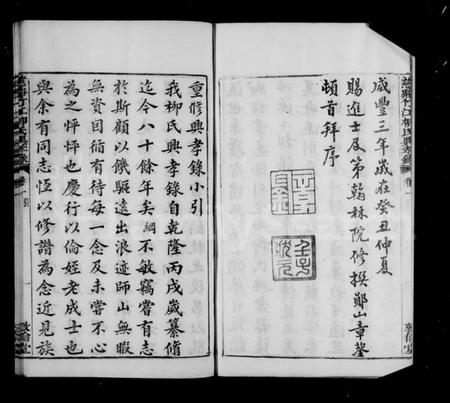 咸豐三年歲在癸丑仲夏
賜進士及第翰林院修撰鄞山章鋆
頓首拜序
壬子狀元
重修興孝錄小引
我柳氏興孝錄自乾隆丙戌歲纂脩
迄今八十餘年矣綱不敏竊嘗有志
於斯顧以饑驅遠出浪迹師山無暇
無資因循有待每一念及未嘗不心
為之怦怦也慶行以倫姪老成士也
與余有同志恆以修譜為念近見族